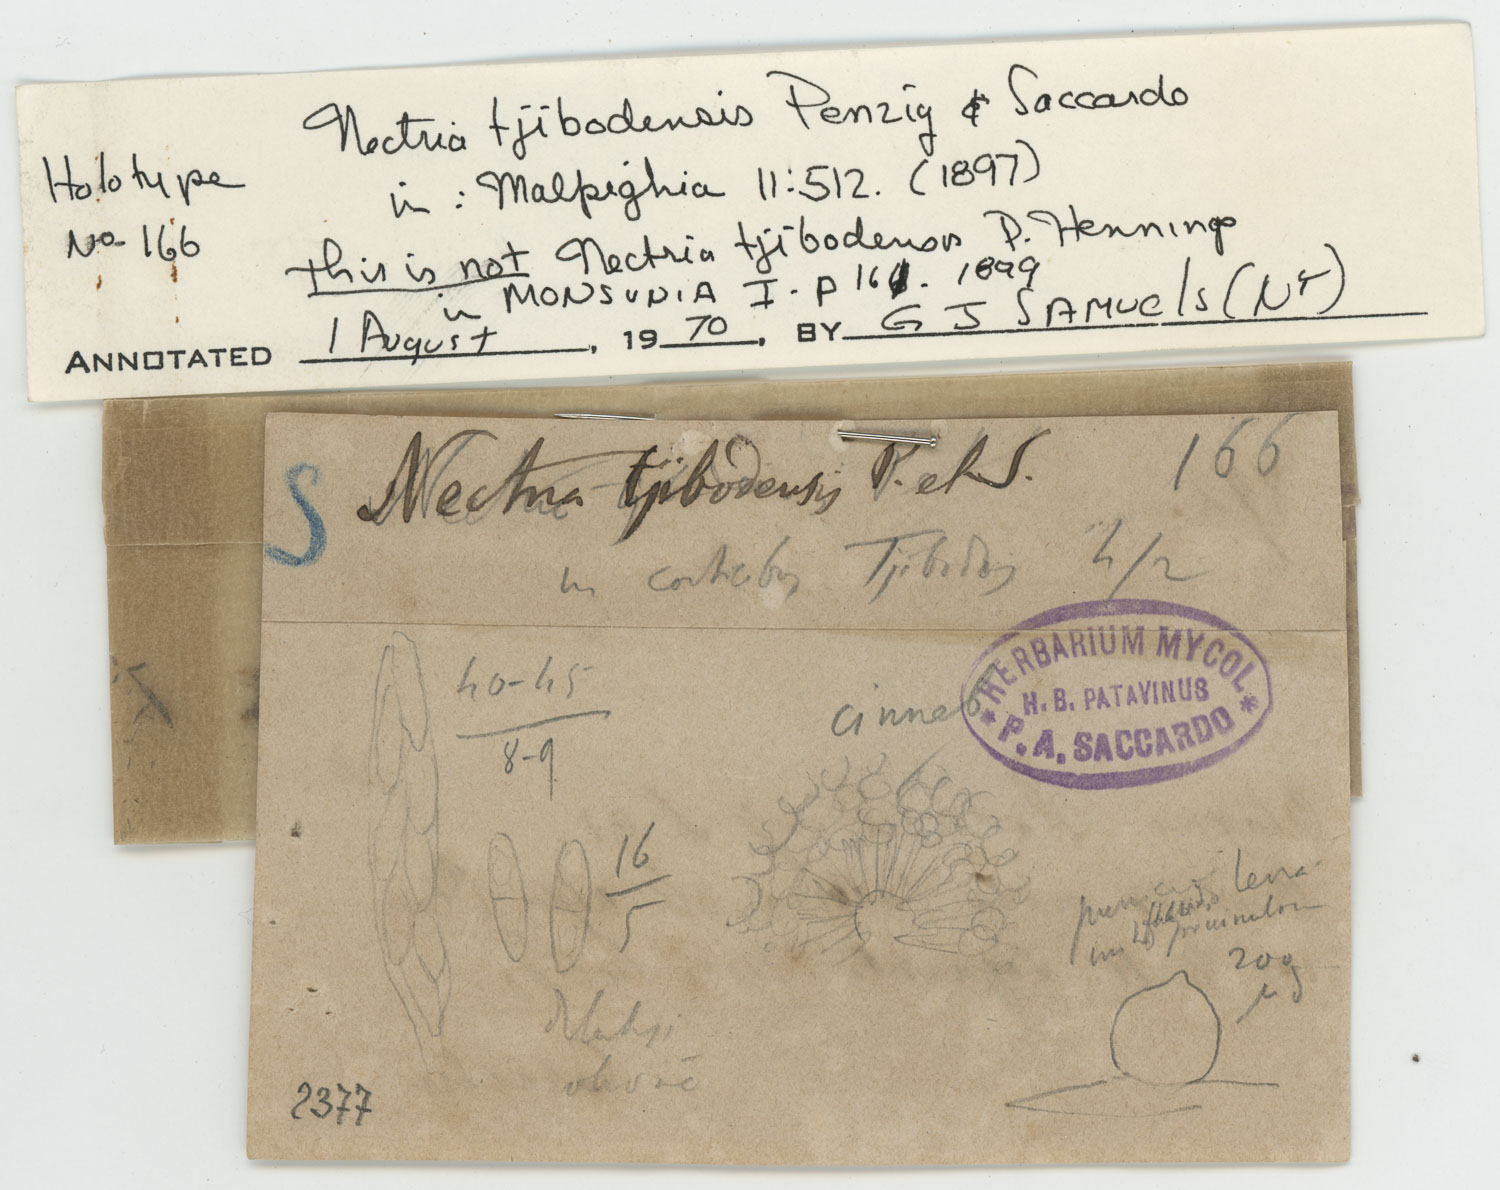 Nectria tjibodensis Penzig & Saccardo
Holotype
in : Malpighia 11:512. (1897)
No 166
this is not Nectria tjibodensis P. Hennings
in MONSUNIA I. p 161. 1899
ANNOTATED 1 August, 1970, BY G J SAMUELS (NY)
S Nectria tjibodensis P. et S. 166
in corticibus Tjibodas 4/2
HERBARIUM MYCOL.
H. B. PATAVINUS
* P. A. SACCARDO *
40-45
8-9
cinnab
16
5
200
μ
2377